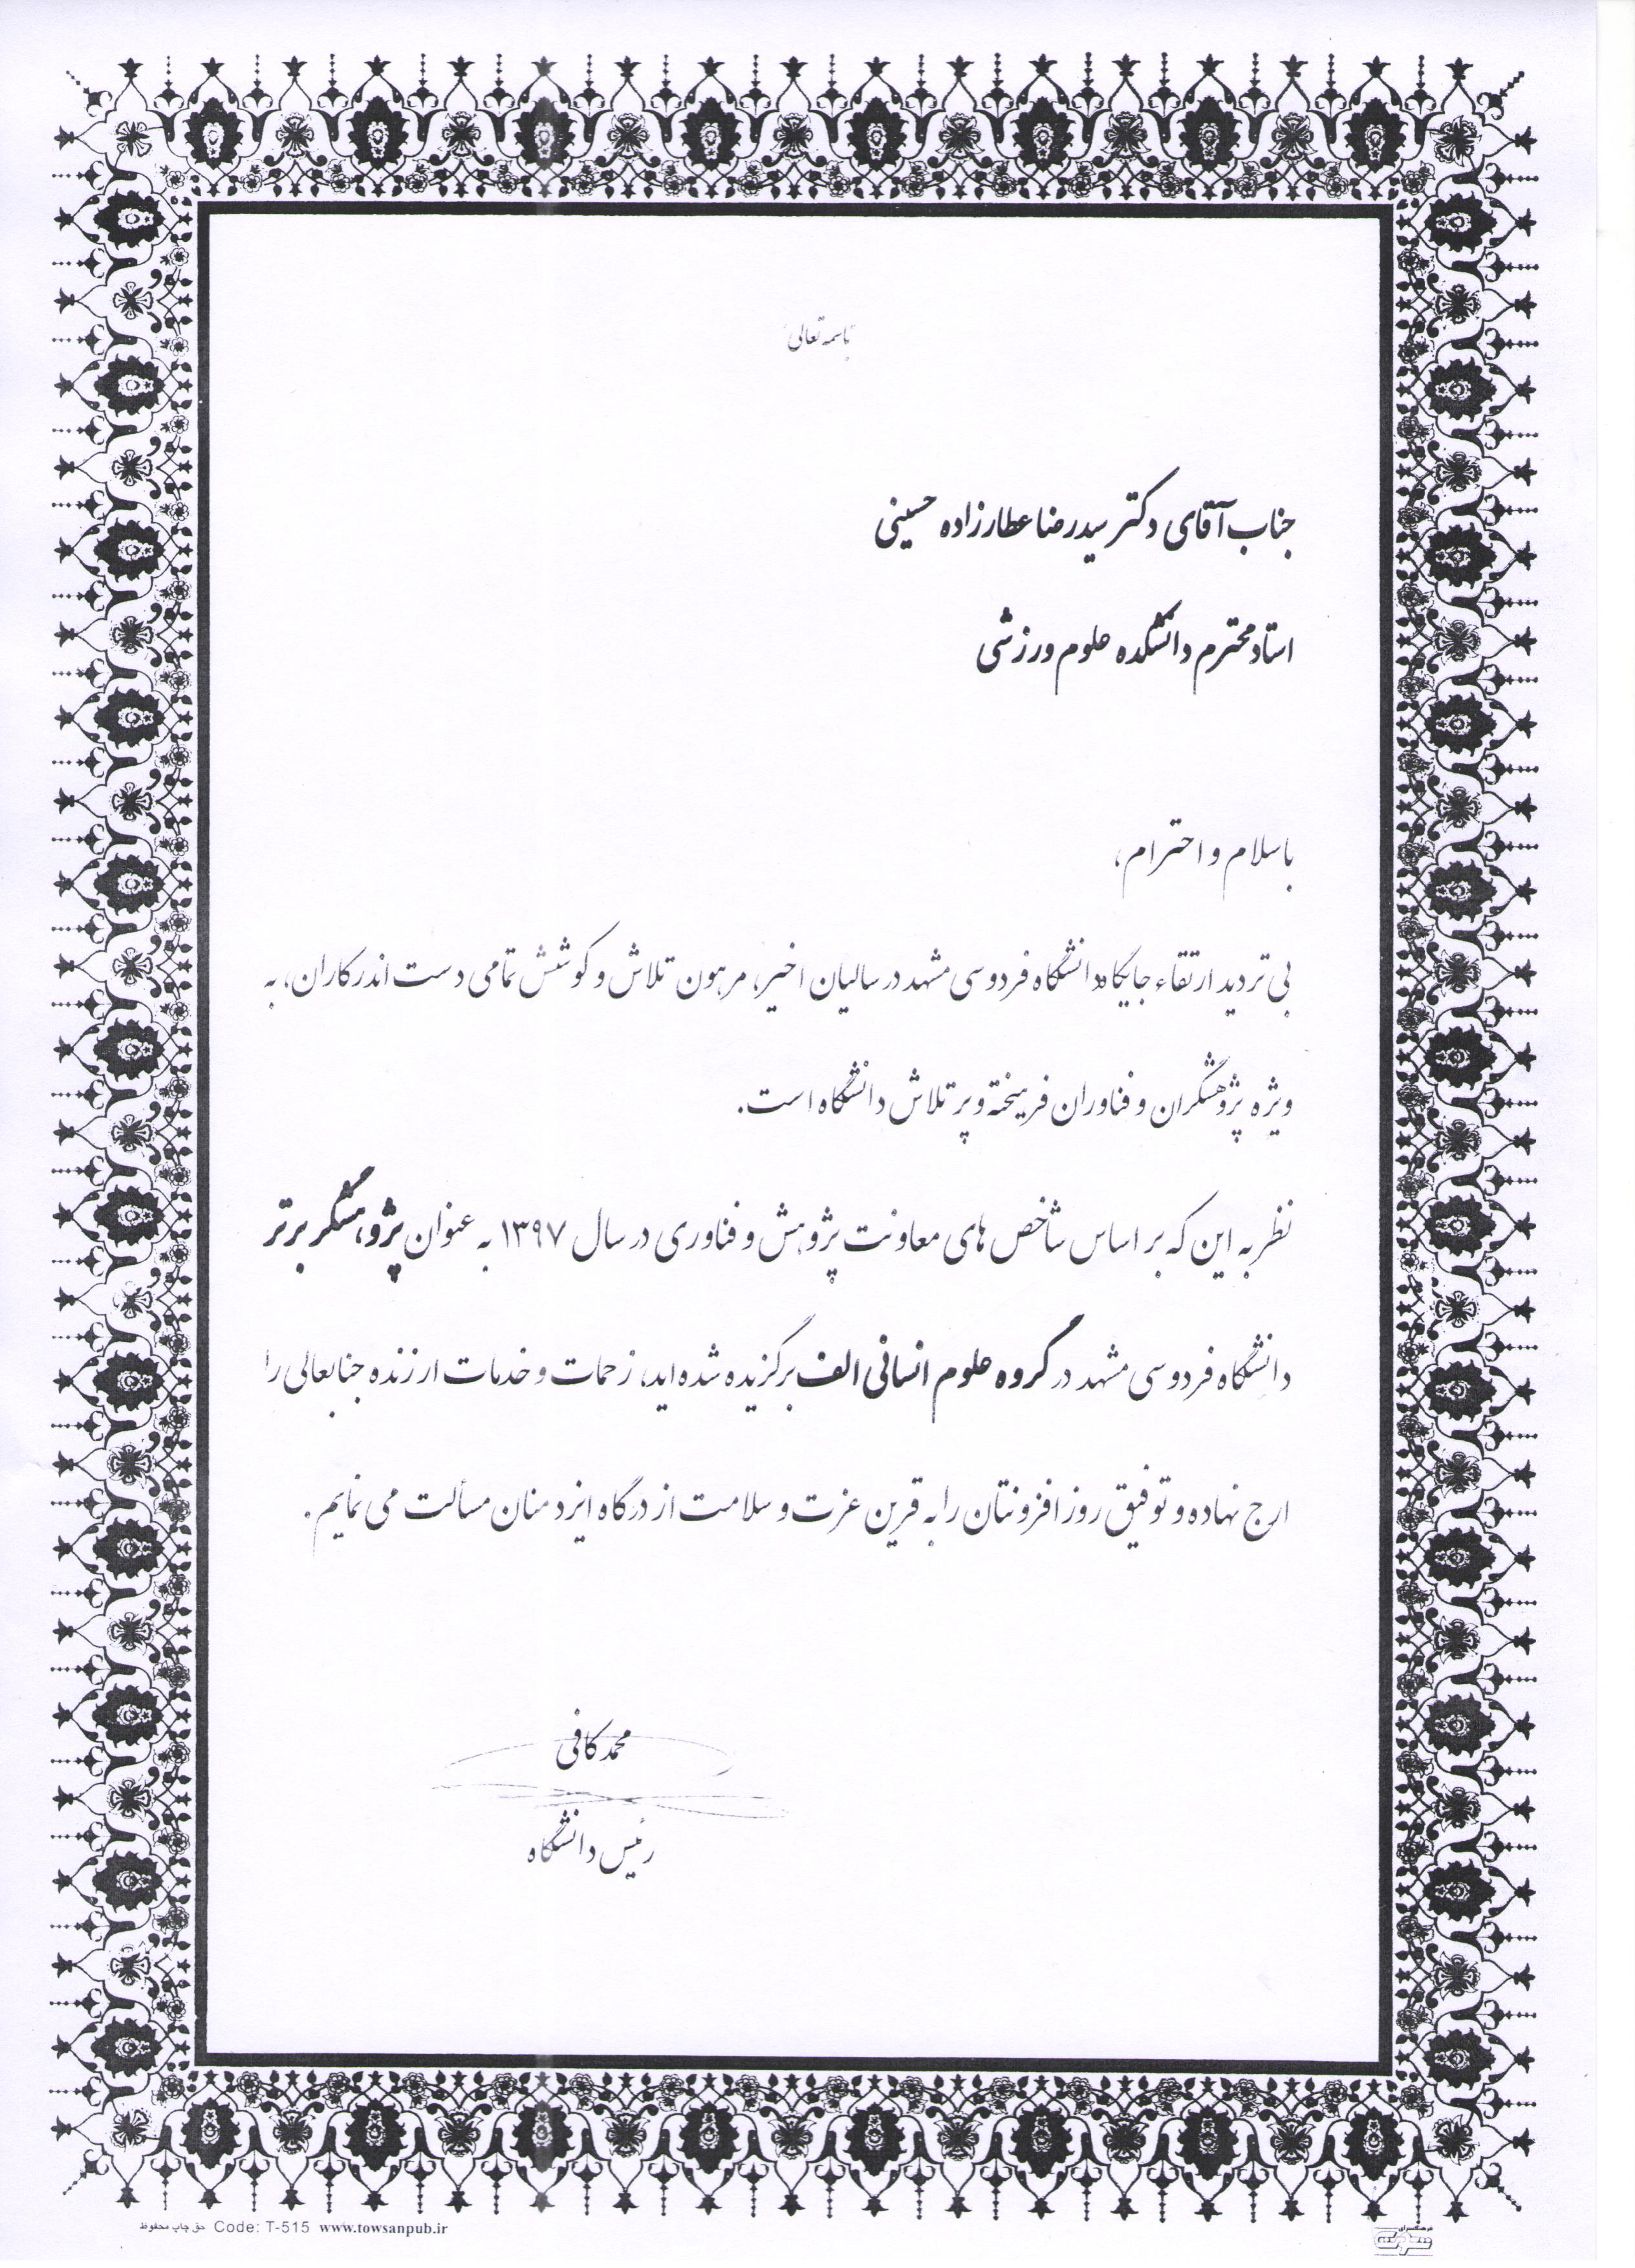 باسمه تعالی
جناب آقای دکتر سیدرضا عطارزاده حسینی
استاد محترم دانشکده علوم ورزشی
با سلام و احترام،
بی تردید ارتقاء جایگاه دانشگاه فردوسی مشهد در سالیان اخیر، مرهون تلاش و کوشش تمامی دست اندرکاران، به
ویژه پژوهشگران و فناوران فرهیخته و پر تلاش دانشگاه است.
نظر به این که بر اساس شاخص های معاونت پژوهش و فناوری در سال ۱۳۹۷ به عنوان پژوهشگر برتر
دانشگاه فردوسی مشهد در گروه علوم انسانی الف برگزیده شده اید، زحمات و خدمات ارزنده جنابعالی را
ارج نهاده و توفیق روز افزونتان را به قرین عزت و سلامت از درگاه ایزد منان مسألت می نمایم.
محمد کافی
رئیس دانشگاه
حق چاپ محفوظ Code: T-515 www.towsanpub.ir